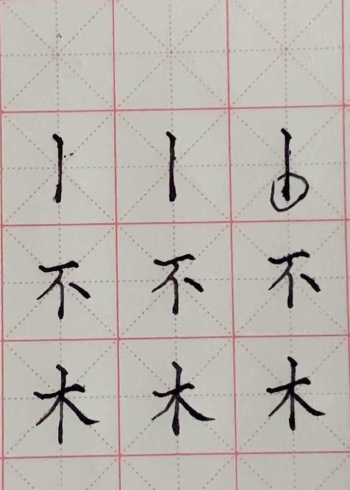 丨 丨 丨
不 不 不
木 木 木